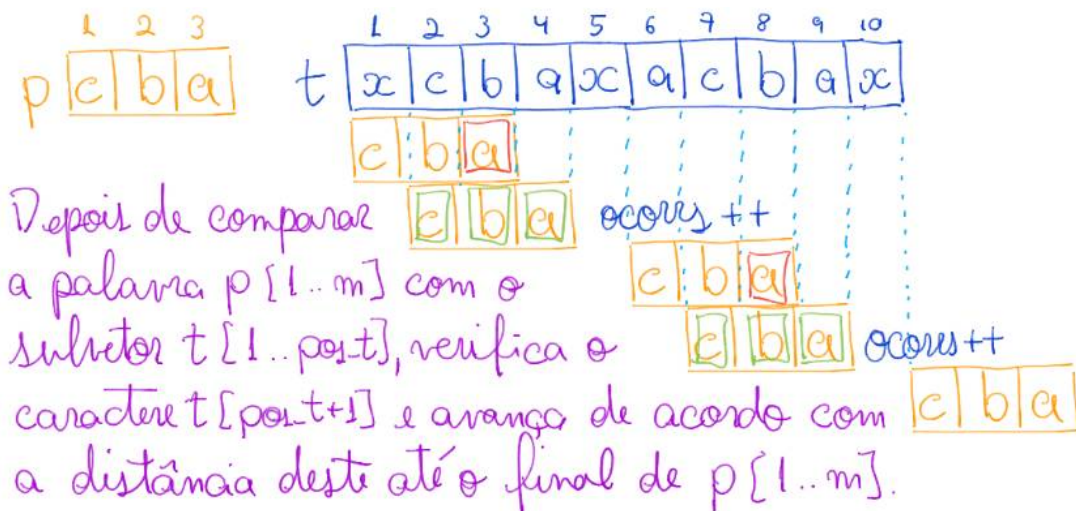 1 2 3 1 2 3 4 5 6 7 8 9 10
p c b a t x c b a x a c b a x
c b a
Depois de comparar c b a ocorrs ++
a palavra p[1..m] com o c b a
subvetor t[1..pos_t], verifica o c b a ocorrs++
caractere t[pos_t+1] e avança de acordo com c b a
a distância deste até o final de p[1..m].